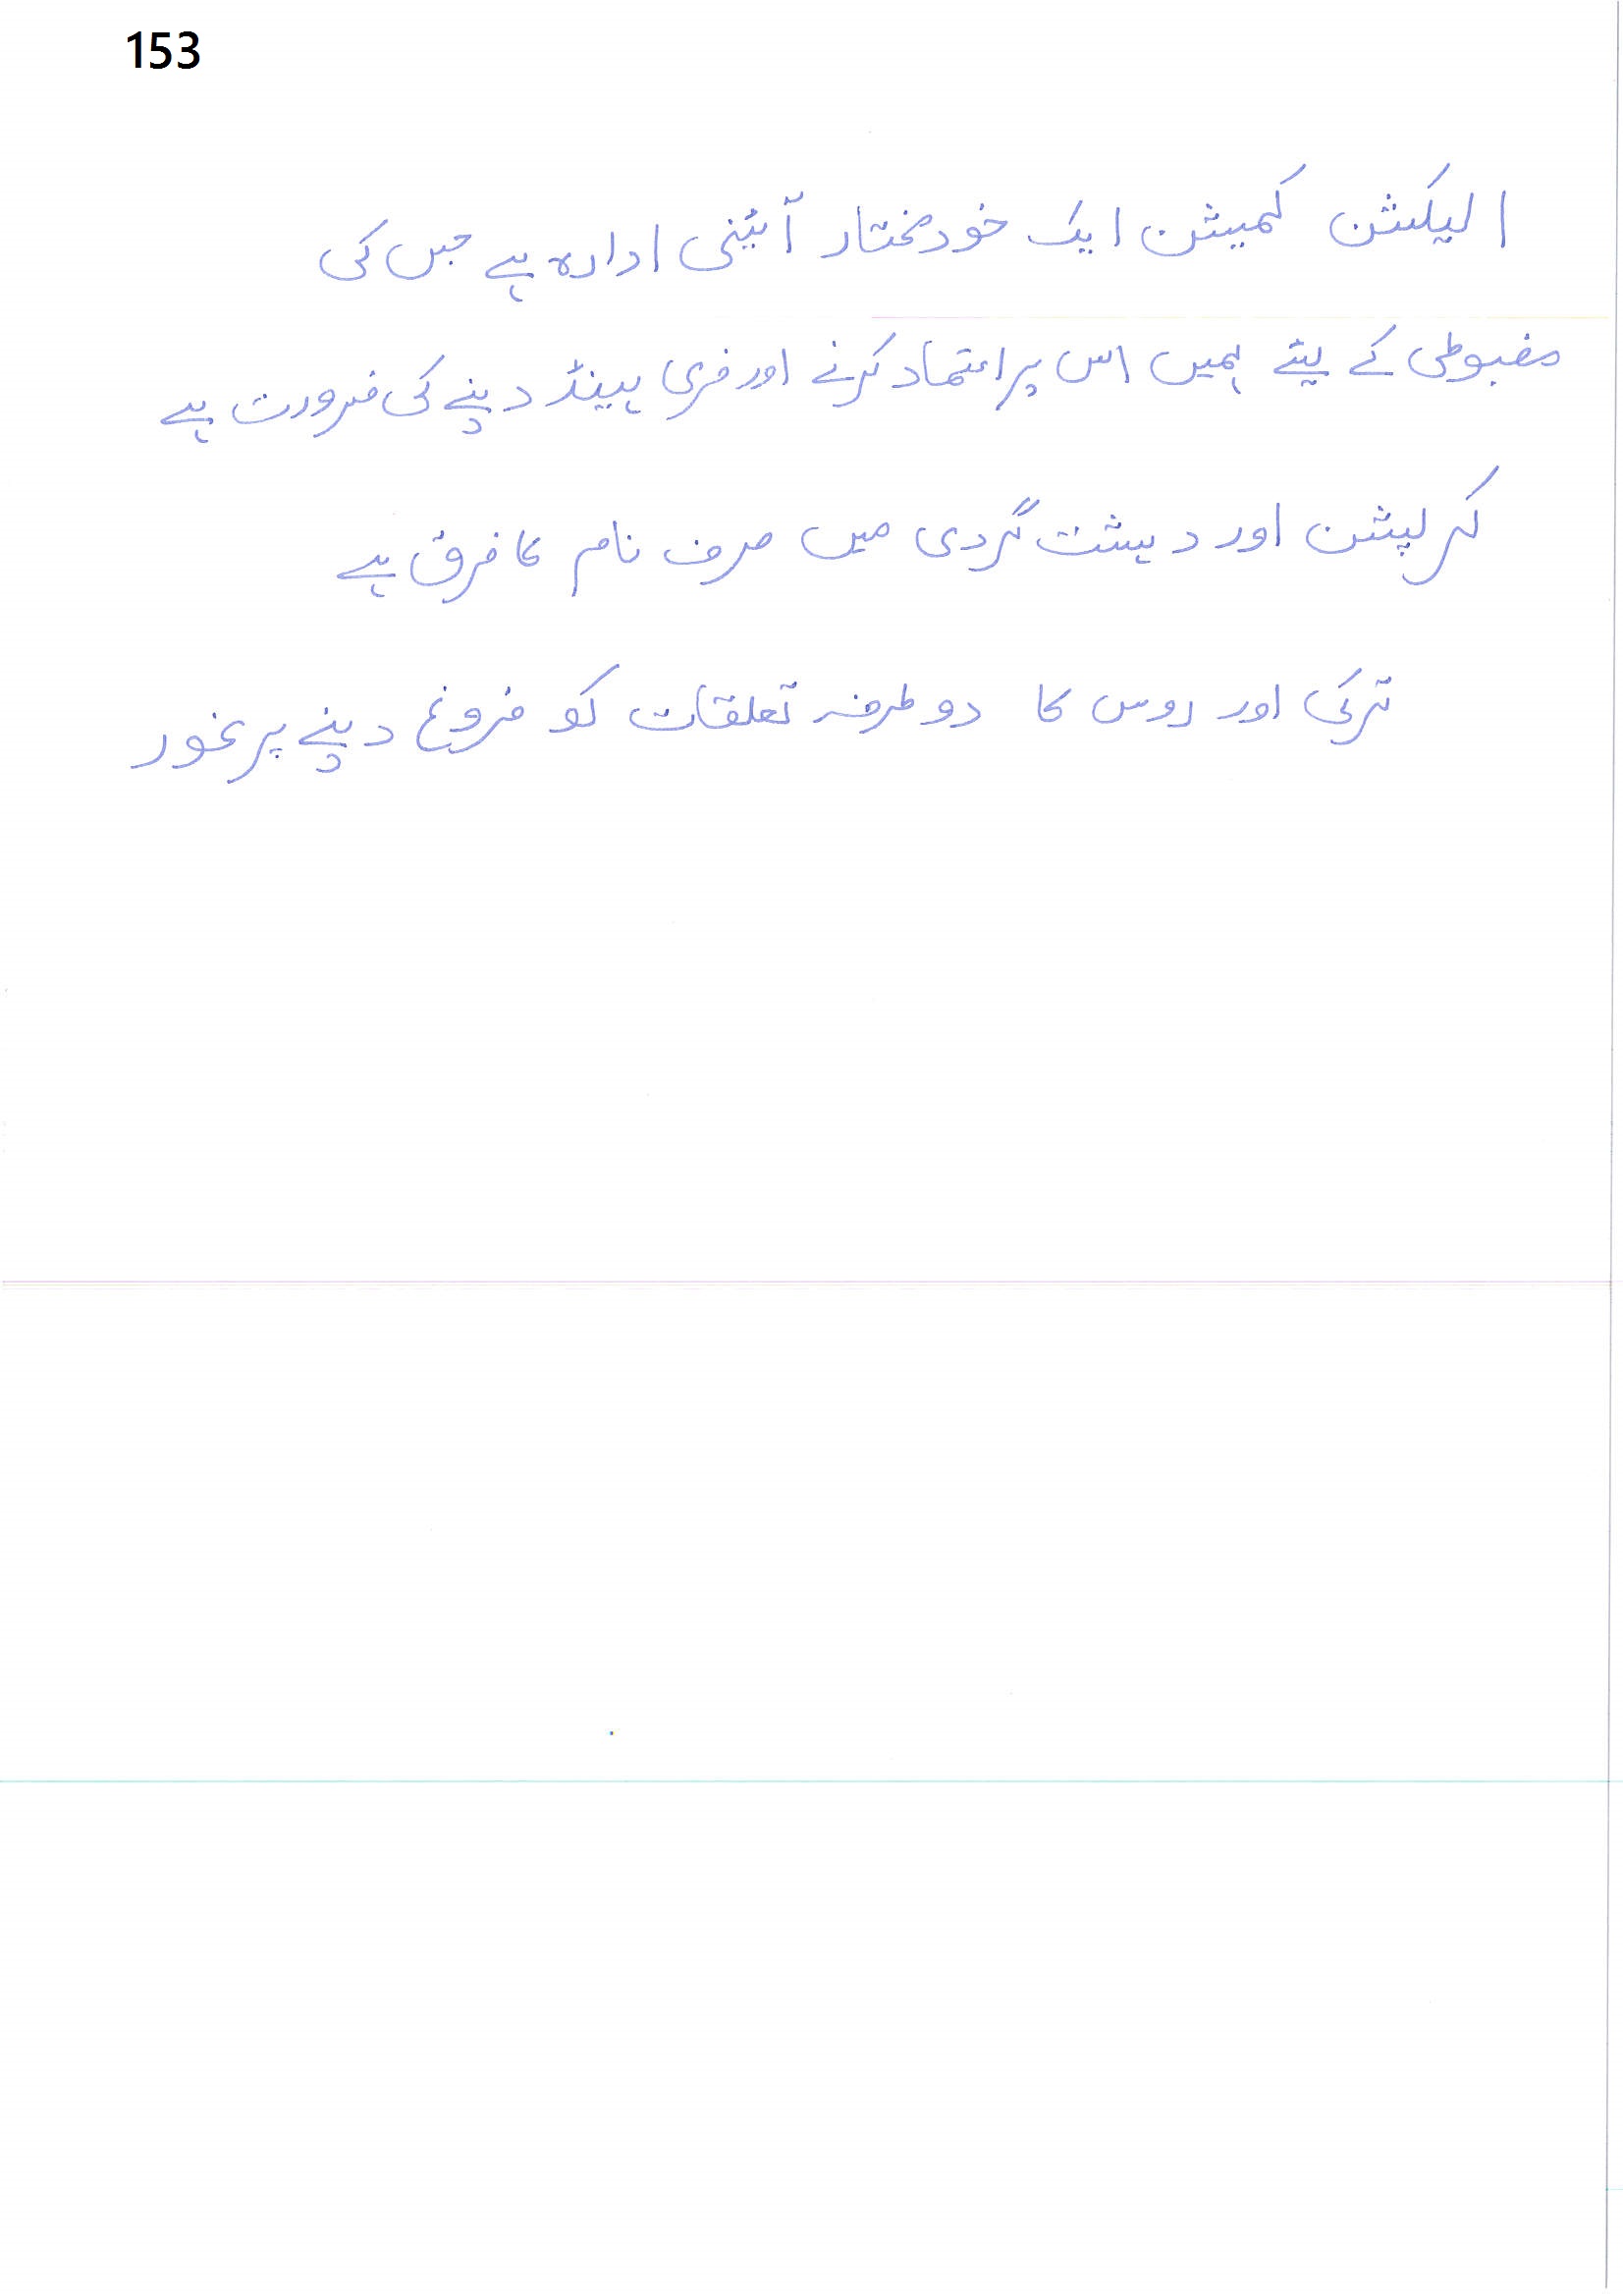 153
الیکشن کمیشن ایک خودمختار آئینی ادارہ ہے جس کی
مضبوطی کے لیئے ہمیں اس پر اعتماد کرنے اور فری ہینڈ دینے کی ضرورت ہے
کرپشن اور دہشت گردی میں صرف نام کا فرق ہے
ترکی اور روس کا دو طرفہ تعلقات کو فروغ دینے پر غور